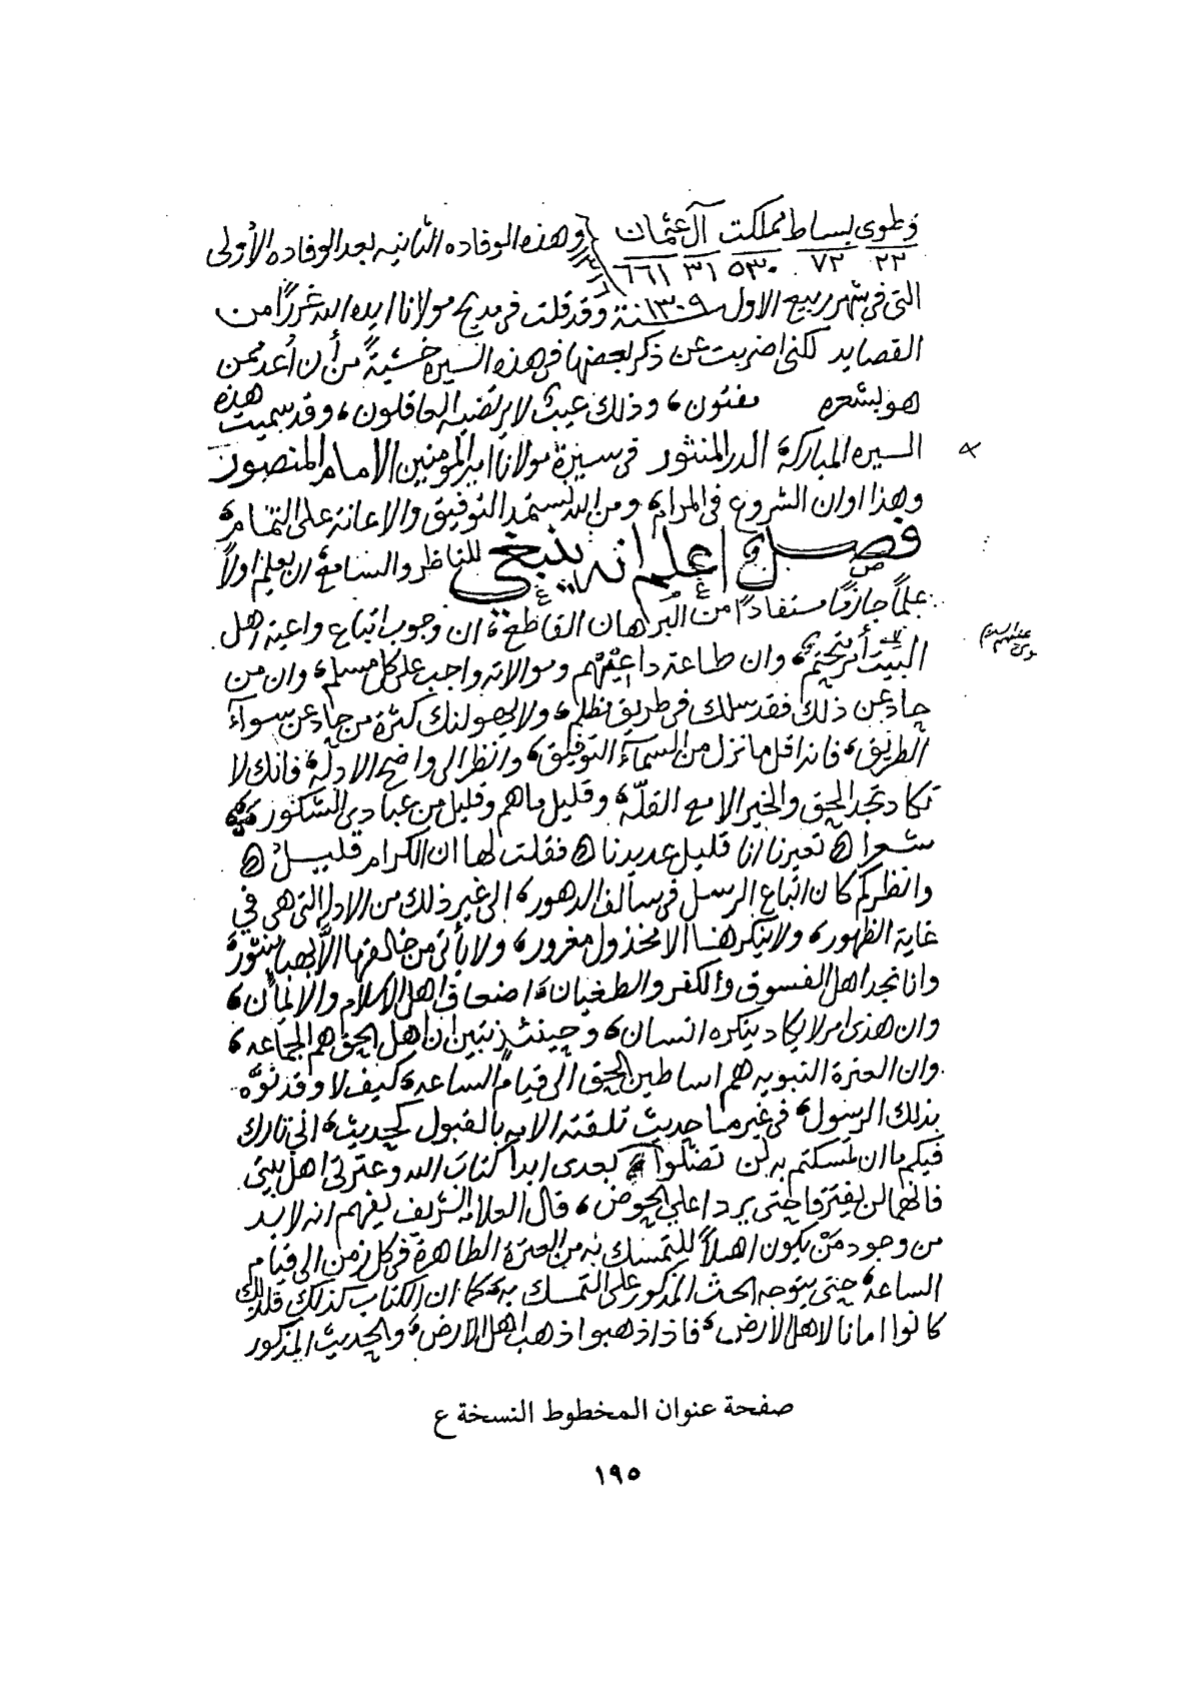 وطوى بساط مملكت آل عثمان وهذه الوفاده الثانيه بعد الوفاده الأولى
٢٢ ٧٢ ٥٣٠ ٣١ ٦٦١
التى فى شهر ربيع الاول سنة ١٣٠٩ وقد قلت فى مديح مولانا ايده الله غررًا من
القصايد لكنى اضربت عن ذكر بعضها فى هذه السيره خشيةً من أن أعد ممن
هو بشعره مفتون، وذلك عيب لا يرتضيه العاقلون، وقد سميت هذه
السيره المباركة الدر المنثور فى سيرة مولانا امير المؤمنين الامام المنصور
وهذا اوان الشروع فى المرام، ومن الله نستمد التوفيق والاعانة على التمام،
فصل إعلم انه ينبغي للناظر والسامع، ان يعلم اولاً
علماً جازمًا مستفادًا من البرهان القاطع، ان وجوب اتباع واعية اهل
البيت أمر متحتم، وان طاعة داعيتهم وموالاته واجب على كل مسلم، وان من
حاد عن ذلك فقد سلك فى طريق مظلم، ولا يهولنك كثرة من حاد عن سوآء
الطريق، فانه اقل ما نزل من السمآء التوفيق، وانظر الى واضح الادلّة، فانك لا
تكاد تجد الحق والخير الا مع القلّة، وقليل ما هم وقليل من عبادى الشكور،
شعرا تعيرنا انا قليل عديدنا فقلت لها ان الكرام قليل
وانظر كم كان اتباع الرسل فى سالف الدهور، الى غير ذلك من الادله التى هى في
غاية الظهور، ولا ينكر هذا الا مخذول مغرور، ولا يأتى من خالفها الاّ بهبا منثور،
وانا نجد اهل الفسوق والكفر والطغيان، اضعاف اهل الاسلام والايمان،
وان هذى امر لا يكاد ينكره انسان، وحينئذ تبين ان اهل الحق هم الجماعه،
وان العترة النبويه هم اساطين الحق الى قيام الساعة، كيف لا وقد نوّه
بذلك الرسول، فى غير ما حديث تلقته الامه بالقبول كحديث، انى تارك
فيكم ما ان تمسكتم به لن تضلوا بعدى ابدا كتاب الله وعترتى اهل بيتى
فانهما لن يفترقا حتى يردا علي الحوض، قال العلامه الشريف يفهم انه لا بد
من وجود من يكون اهلاً للتمسك به من العترة الطاهرة فى كل زمن الى قيام
الساعة، حتى يتوجه الحث المذكور على التمسك به، كما ان الكتاب كذلك فلذلك
كانوا امانا لاهل الارض، فاذا ذهبوا ذهب اهل الارض، والحديث المذكور
صفحة عنوان المخطوط النسخة ع
١٩٥